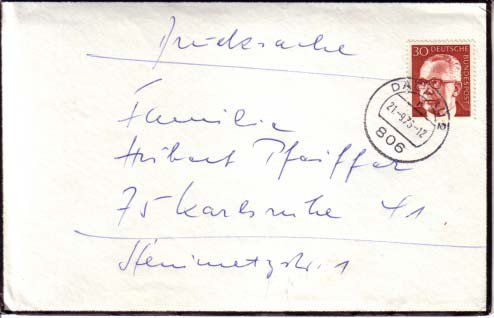 Drucksache
30 DEUTSCHE BUNDESPOST
DACHAU 2
21.-9.73-12
806
Familie
Heribert Pfeiffer
75 Karlsruhe 41
Steinmetzstr. 1